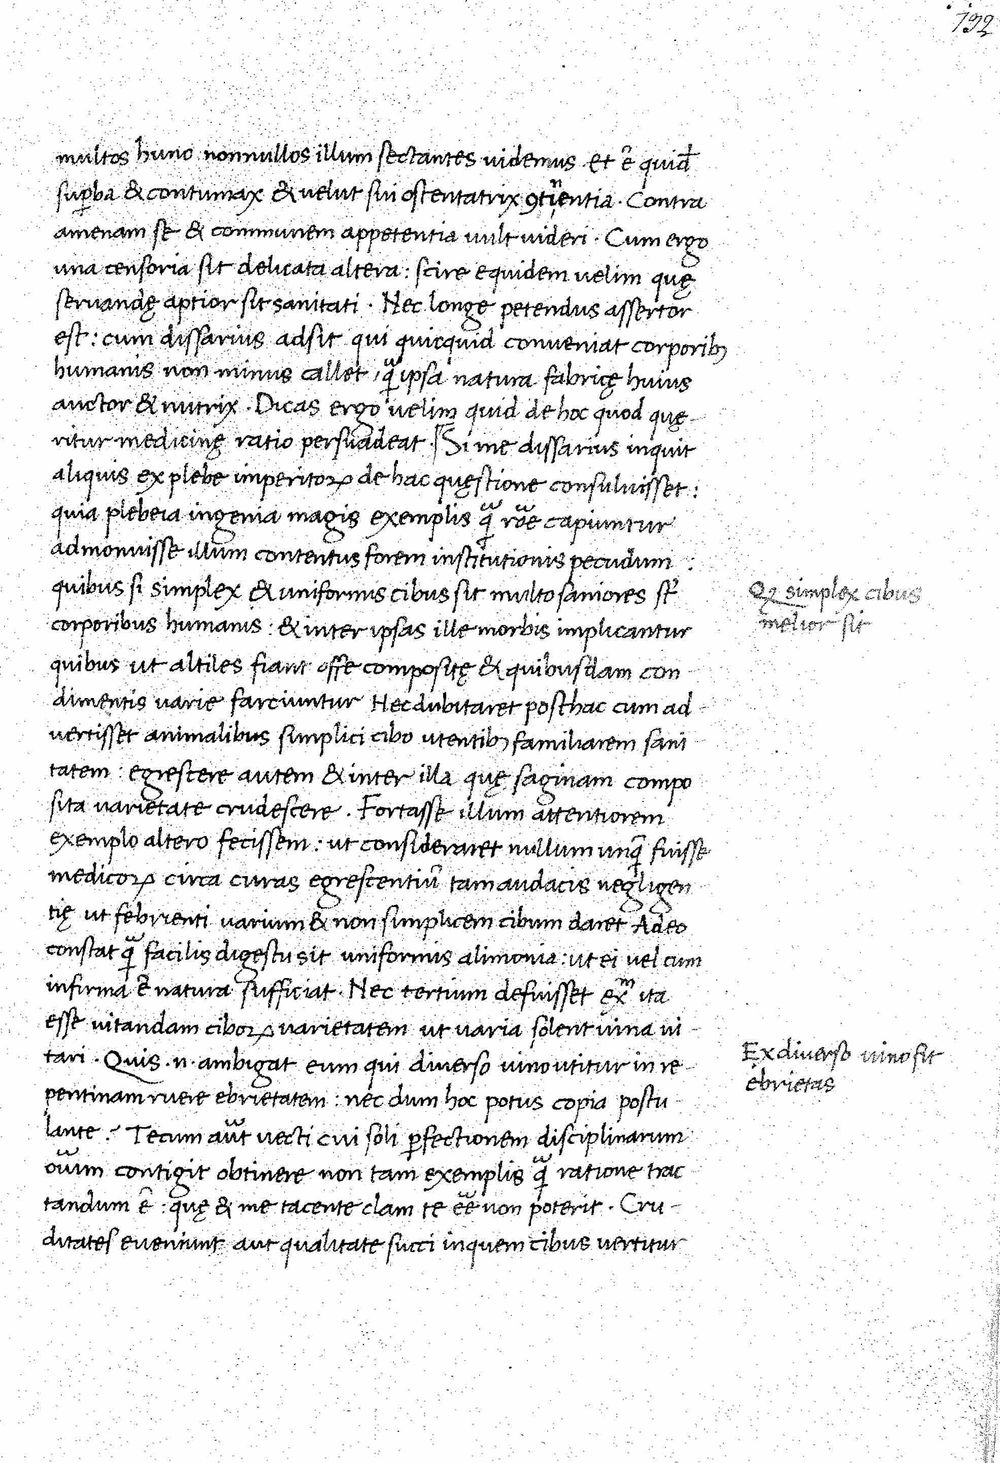 192
multos hunc nonnullos illum sectantes uidemus et ē quidē
sup̱ba & contumax & uelut sui ostentatrix ꝯtinentia · Contra
amenam se & communem appetentia uult uideri · Cum ergo
una censoria sit delicata altera : scire equidem uelim quę
seruandę aptior sit sanitati · Nec longe petendus assertor
est : cum dissarius adsit qui quicquid conueniat corporibꝫ
humanis non minus callet , q̄ ipsa natura fabricę huius
auctor & nutrix · Dicas ergo uelim quid de hoc quod quę
ritur medicinę ratio persuadeat · Si me dissarius inquit
aliquis ex plebe imperitoꝝ de hac quęstione consuluisset :
quia plebeia ingenia magis exemplis q̄ rōe capiuntur
admonuisse illum contentus forem institutionis pecudum :
quibus si simplex & uniformis cibus sit multo saniores st̄
Qꝫ simplex cibus
corporibus humanis : & inter ipsas ille morbis implicantur
melior sit
quibus ut altiles fiant offe compositę & quibusdam con
dimentis varie farciuntur Nec dubitaret posthac cum ad
vertisset animalibus simplici cibo utentibꝫ familiarem sani
tatem : egrescere autem & inter illa quę saginam compo
sita uarietate crudescere . Fortasse illum attentiorem
exemplo altero fecissem : ut consideraret nullum unq̄ fuisse
medicoꝝ circa curas egrescentiū tam audacis negligen
tię ut febrienti varium & non simplicem cibum daret Adeo
constat q̄ facilis digestu sit uniformis alimonia : ut ei uel cum
infirma ē natura sufficiat · Nec tertium defuisset exm̄ ita
esse uitandam ciboꝝ uarietatem ut varia solent uina ui
tari · Quis .n. ambigat eum qui diuerso uino utitur in re
Ex diuerso uino fit
pentinam ruere ebrietatem : nec dum hoc potus copia postu
ebrietas
lante : Tecum aūt uecti cui soli p̱fectionem disciplinarum
oīum contigit obtinere non tam exemplis q̄ ratione trac
tandum ē : quę & me tacente clam te ēē non poterit · Cru
ditates eueniunt aut qualitate succi in quem cibus uertitur